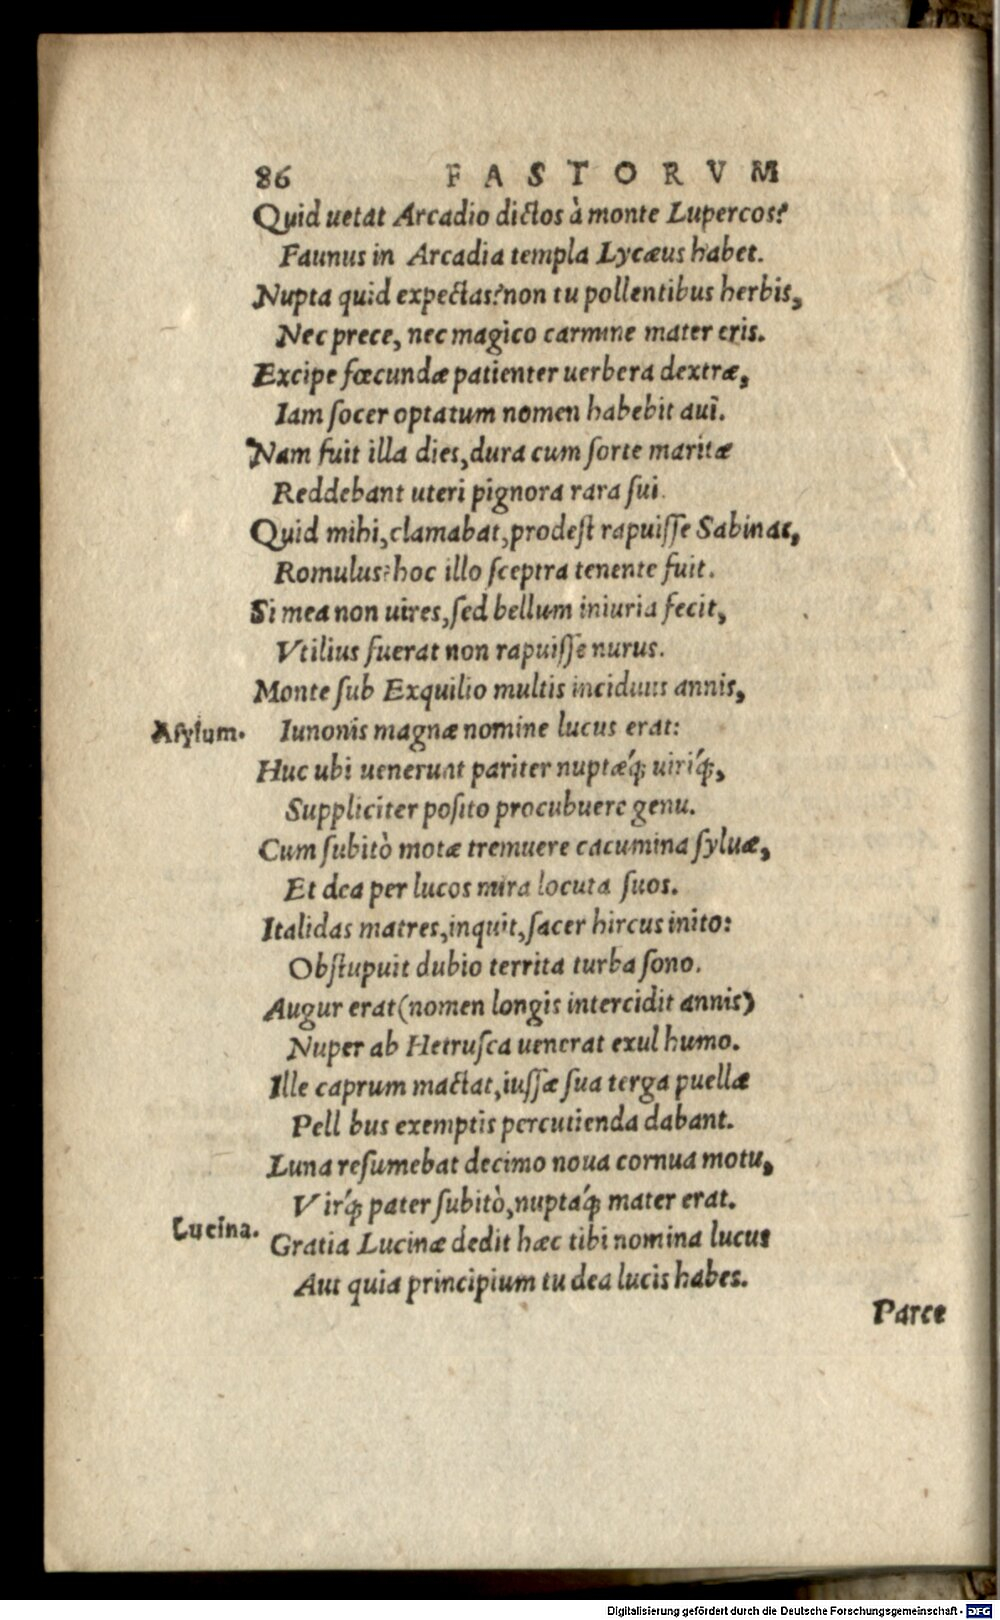 86 FASTORVM
Quid uetat Arcadio dictos à monte Lupercos?
Faunus in Arcadia templa Lycæus habet.
Nupta quid expectas? non tu pollentibus herbis,
Nec prece, nec magico carmine mater eris.
Excipe fœcundæ patienter uerbera dextræ,
Iam ſocer optatum nomen habebit aui.
Nam fuit illa dies, dura cum ſorte maritæ
Reddebant uteri pignora rara ſui.
Quid mihi, clamabat, prodeſt rapuiſſe Sabinas,
Romulus? hoc illo ſceptra tenente fuit.
Si mea non uires, ſed bellum iniuria fecit,
Vtilius fuerat non rapuiſſe nurus.
Monte ſub Exquilio multis inciduus annis,
Aſylum. Iunonis magnæ nomine lucus erat:
Huc ubi uenerunt pariter nuptǽq; uiríq;,
Suppliciter poſito procubuere genu.
Cum ſubitò motæ tremuere cacumina ſyluæ,
Et dea per lucos mira locuta ſuos.
Italidas matres, inquit, ſacer hircus inito:
Obſtupuit dubio territa turba ſono.
Augur erat (nomen longis intercidit annis)
Nuper ab Hetruſca uenerat exul humo.
Ille caprum mactat, iuſſæ ſua terga puellæ
Pell bus exemptis percutienda dabant.
Luna reſumebat decimo noua cornua motu,
Virq́; pater ſubitò, nuptáq; mater erat.
Lucina. Gratia Lucinæ dedit hæc tibi nomina lucus
Aut quia principium tu dea lucis habes.
Parce
Digitalisierung gefördert durch die Deutsche Forschungsgemeinschaft - DFG